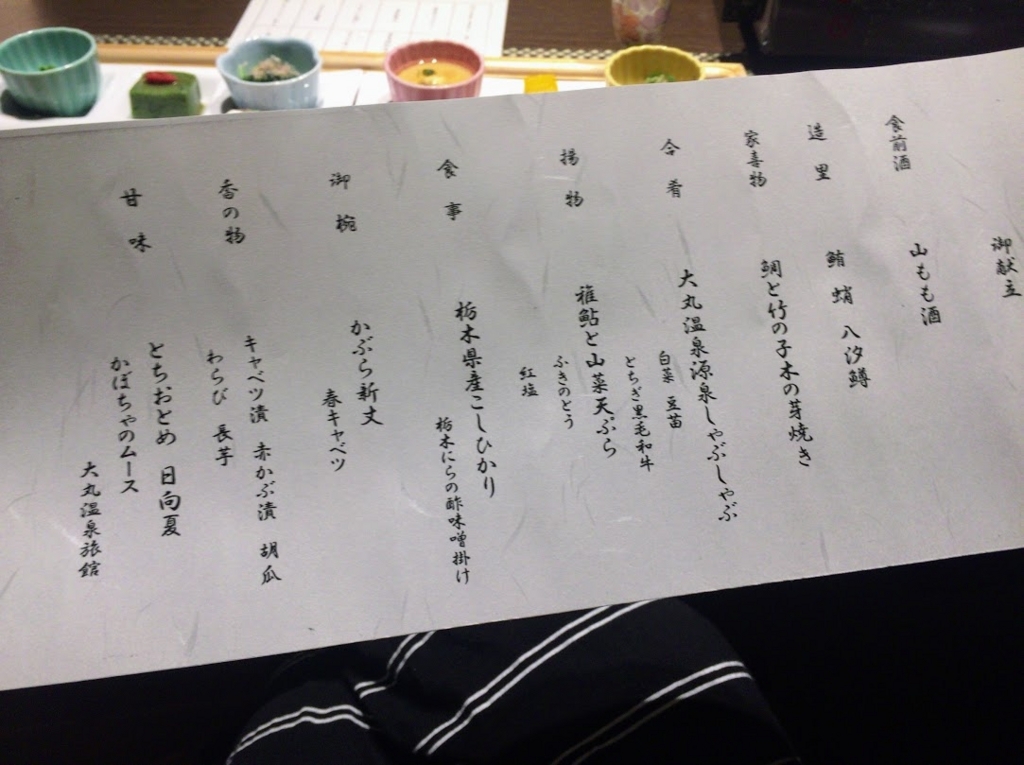 御献立
食前酒
山もも酒
造里
鮪 蛸 八汐鱒
家喜物
鯛と竹の子木の芽焼き
合肴
大丸温泉源泉しゃぶしゃぶ
白菜 豆苗
とちぎ黒毛和牛
揚物
稚鮎と山菜天ぷら
ふきのとう
紅塩
食事
栃木県産こしひかり
栃木にらの酢味噌掛け
御椀
かぶら新丈
春キャベツ
香の物
キャベツ漬 赤かぶ漬 胡瓜
わらび 長芋
甘味
とちおとめ 日向夏
かぼちゃのムース
大丸温泉旅館